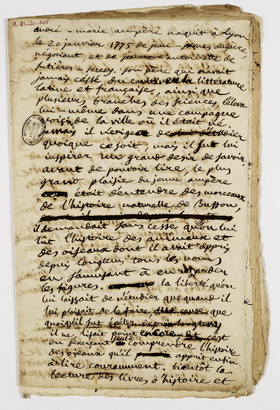 andré-marie ampère naquit à Lyon
le 20 janvier 1775 de jean-jacques ampère
négociant et de jeanne-antoinette de
sutières-sarcey. son père qui n'avait
jamais cessé de cultiver la littérature
latine et française, ainsi que
plusieurs branches des sciences, l'éleva
lui même dans une campagne
voisine de la ville où il était né
jamais il n'exigea
quoique ce soit, mais il sut lui
inspirer un grand désir de savoir
avant de pouvoir lire, le plus
grand plaisir du jeune ampère
était d'entendre des morceaux
de l'histoire naturelle de Buffon,
il demandait sans cesse qu'on lui
lût l'histoire des animaux et
des oiseaux dont il avait appris
depuis longtems tous les noms
en s'amusant à en regarder
les figures. la liberté qu'on
lui laissait de n'étudier que quand il
lui plaisait de le faire, fut cause que
quoiqu'il sut épeler depuis longtems,
il ne lisait point
en s'exerçant comprendre l'histoire
des oiseaux qu'il apprit enfin
à lire couramment. bientôt la
lecture des livres d'histoire et